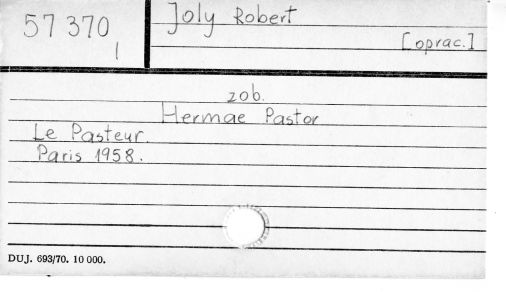 57 370
1
Joly Robert
[oprac.]
zob.
Hermae Pastor
Le Pasteur.
Paris 1958.
DUJ. 693/70. 10 000.